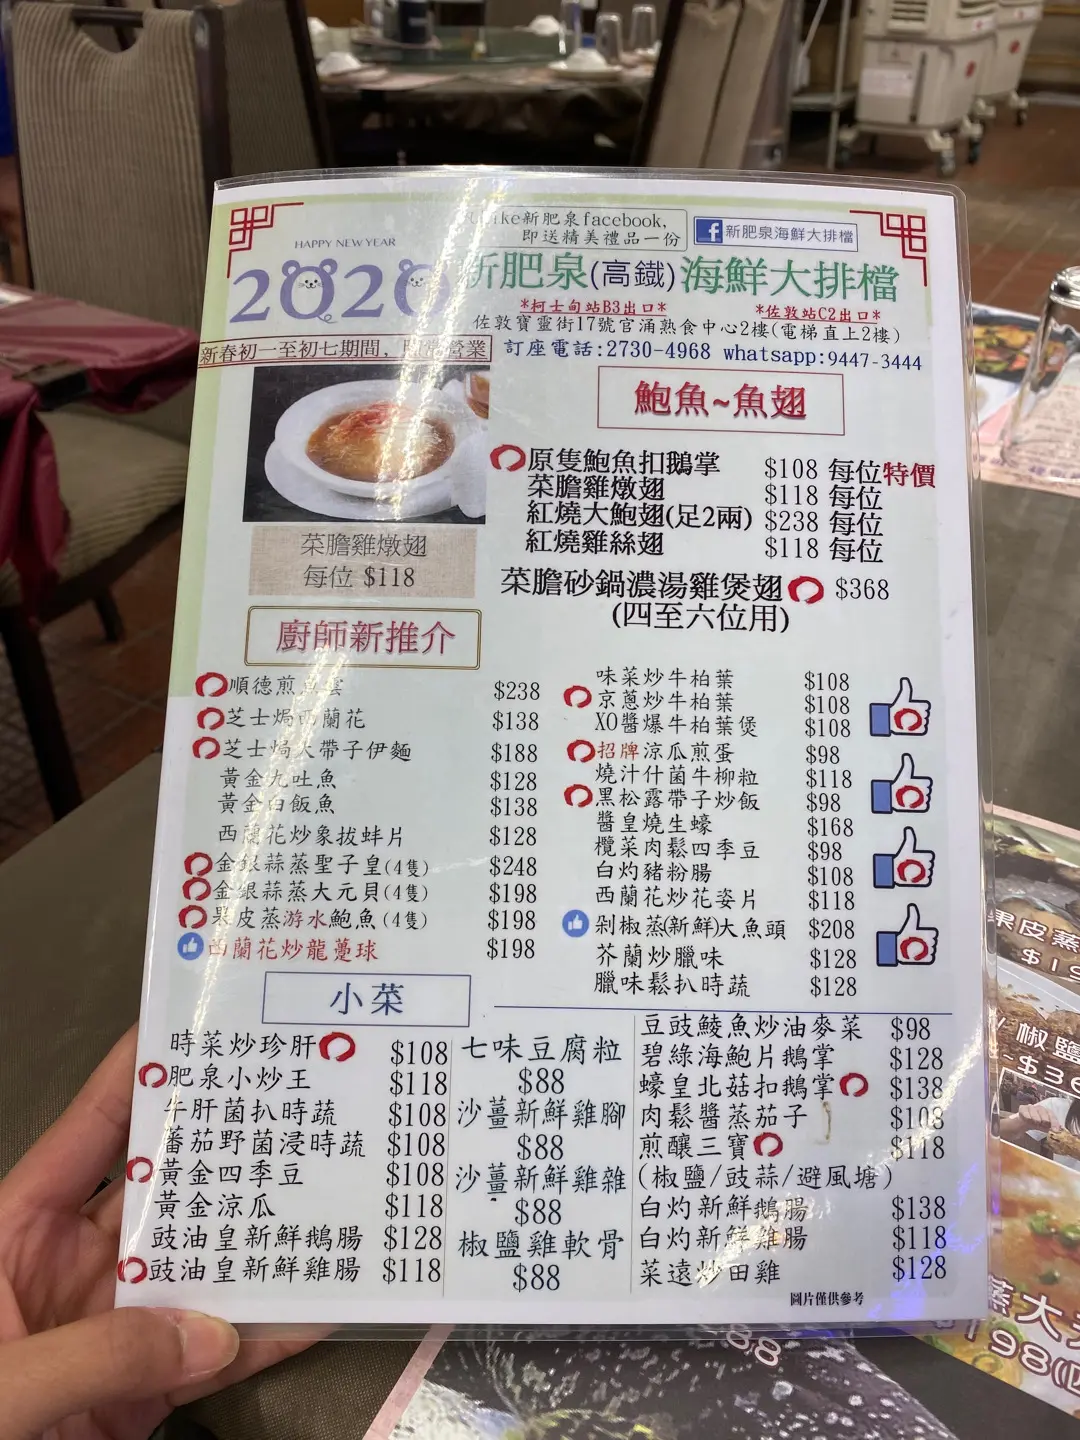 HAPPY NEW YEAR
2020
like新肥泉facebook,
即送精美禮品一份
f 新肥泉海鮮大排檔
新肥泉(高鐵)海鮮大排檔
*柯士甸站B3出口* *佐敦站C2出口*
佐敦寶靈街17號官涌熟食中心2樓(電梯直上2樓)
新春初一至初七期間, 營業
訂座電話:2730-4968 whatsapp:9447-3444
菜膽雞燉翅
每位 $118
鮑魚~魚翅
原隻鮑魚扣鵝掌 $108 每位特價
菜膽雞燉翅 $118 每位
紅燒大鮑翅(足2兩) $238 每位
紅燒雞絲翅 $118 每位
菜膽砂鍋濃湯雞煲翅 $368
(四至六位用)
廚師新推介
順德煎魚雲 $238
芝士焗西蘭花 $138
芝士焗大帶子伊麵 $188
黃金九吐魚 $128
黃金白飯魚 $138
西蘭花炒象拔蚌片 $128
金銀蒜蒸聖子皇(4隻) $248
金銀蒜蒸大元貝(4隻) $198
果皮蒸游水鮑魚(4隻) $198
西蘭花炒龍躉球 $198
味菜炒牛柏葉 $108
京蔥炒牛柏葉 $108
XO醬爆牛柏葉煲 $108
招牌涼瓜煎蛋 $98
燒汁什菌牛柳粒 $118
黑松露帶子炒飯 $98
醬皇燒生蠔 $168
欖菜肉鬆四季豆 $98
白灼豬粉腸 $108
西蘭花炒花姿片 $118
剁椒蒸(新鮮)大魚頭 $208
芥蘭炒臘味 $128
臘味鬆扒時蔬 $128
小菜
時菜炒珍肝 $108
肥泉小炒王 $118
牛肝菌扒時蔬 $108
蕃茄野菌浸時蔬 $108
黃金四季豆 $108
黃金涼瓜 $118
豉油皇新鮮鵝腸 $128
豉油皇新鮮雞腸 $118
七味豆腐粒
$88
沙薑新鮮雞腳
$88
沙薑新鮮雞雜
$88
椒鹽雞軟骨
$88
豆豉鯪魚炒油麥菜 $98
碧綠海鮑片鵝掌 $128
蠔皇北菇扣鵝掌 $138
肉鬆醬蒸茄子 $108
煎釀三寶 $118
(椒鹽/豉蒜/避風塘)
白灼新鮮鵝腸 $138
白灼新鮮雞腸 $118
菜遠炒田雞 $128
圖片僅供參考
果皮蒸
椒鹽
蒸大
198
88